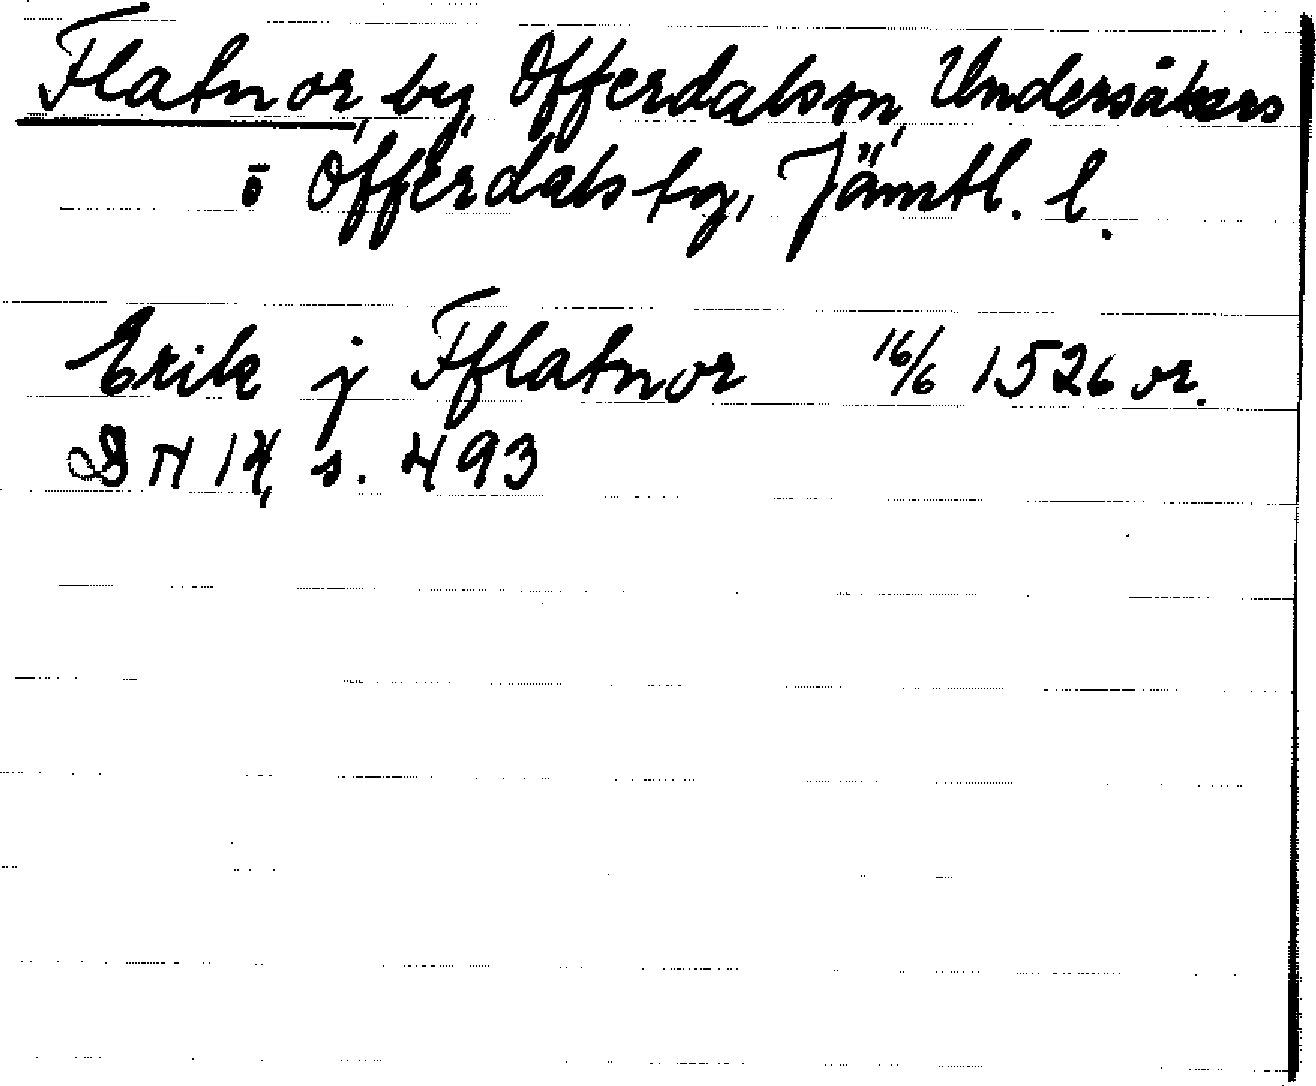 Flatnor, by, Offerdals sn, Undersåkers
o Offerdals tg, Jämtl. l.
Erik j Fflatnor 16/6 1526 or.
DN 14, s. 493